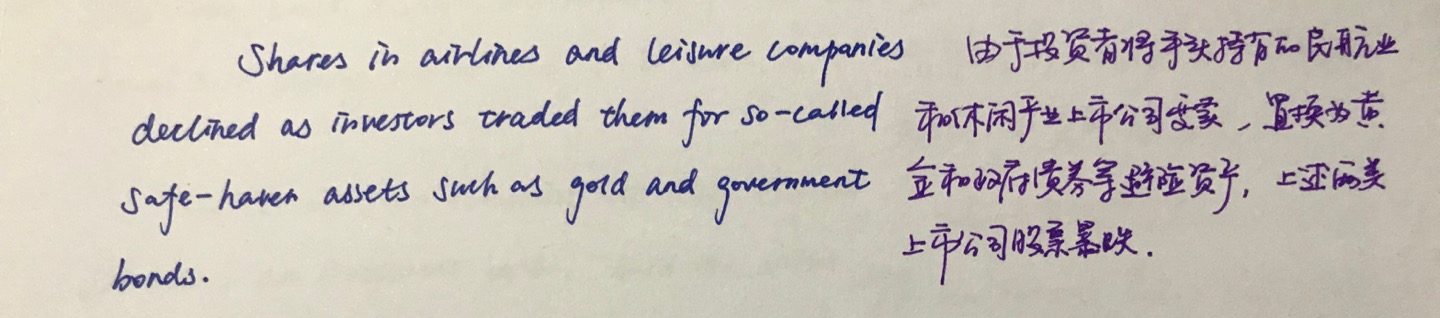 Shares in airlines and leisure companies
declined as investors traded them for so-called
safe-haven assets such as gold and government
bonds.
由于投资者将手头持有的民航业
和休闲产业上市公司变卖，置换为黄
金和政府债券等避险资产，上述两类
上市公司股票暴跌.